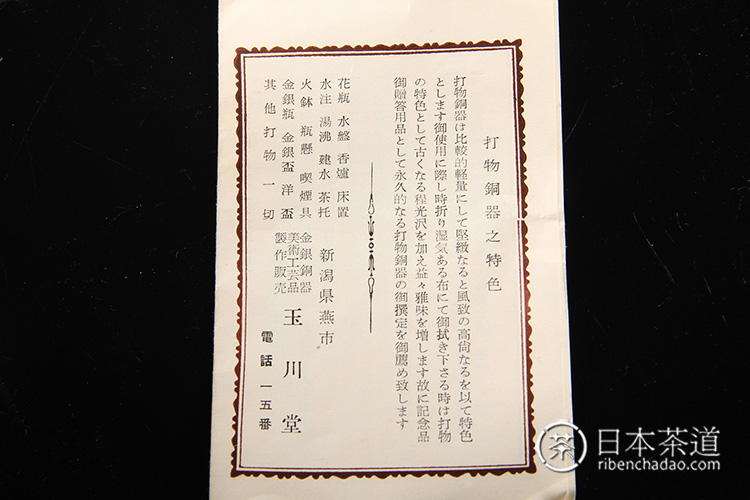 打物銅器之特色
打物銅器は比較的軽量にして堅緻なると風致の高尚なるを以て特色
とします御使用に際し時折り湿気ある布にて御拭き下さる時は打物
の特色として古くなる程光沢を加え益々雅味を増します故に記念品
御贈答用品として永久的なる打物銅器の御撰定を御薦め致します
花瓶 水盤 香爐 床置
水注 湯沸 建水 茶托
火鉢 瓶懸 喫煙具
金銀瓶 金銀盃 洋盃
其他打物一切
新潟県燕市
金銀銅器
美術工芸品
製作販売
玉川堂
電話一五番
茶
日本茶道
ribenchadao.com